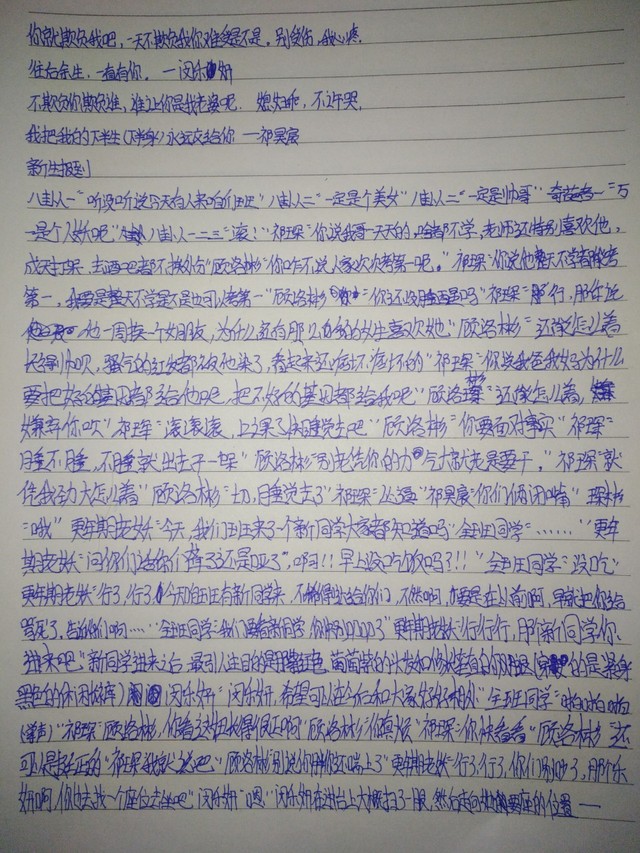 你就欺负我吧，一天不欺负我你难受是不是，别受伤，我心疼.
往后余生，一直有你。 —闵乐妍
不欺负你欺负谁，谁让你是我老婆呢. 媳妇乖，不许哭.
我把我的下半生(下半身)永远交给你 —祁昊宸
新生报到
八卦女一“听没听说今天有人来咱们班”八卦女二“一定是个美女”八卦女二“一定是帅哥” 万
一是个人妖呢” 八卦女一二三“滚！”祁琛“你说我哥一天天的，啥都不学，老师还特别喜欢他，
成天打架，去酒吧都不挨处分”顾洛彬“你咋不说人家次次考第一呢。”祁琛“你说他整天不学都能考
第一，我要是整天不学是不是也可以考第一”顾洛彬“你还没睡醒是吗”祁琛“那行，那你说
他一周换一个女朋友，为什么还有那么多的女生喜欢她”顾洛彬“还能怎么着
长得帅呗，骚气的红发都没他染了，看起来还痞坏痞坏的”祁琛“你说我爸我妈为什么
要把好的基因都给他呢，把不好的基因都给我呢”顾洛彬“还能怎么着，
嫌弃你呗”祁琛“滚滚滚，上课了快睡觉去吧”顾洛彬“你要面对事实”祁琛“
睡不睡，不睡就出去干一架”顾洛彬“别老凭你的力气大就老是要干。”祁琛“就
凭我劲大怎么着”顾洛彬“切，睡觉去了”祁琛“怂逼”祁昊宸“你们俩闭嘴” 琛彬
“哦” 更年期老妖“今天，我们班来了一个新同学大家都知道吗”全班同学“……”更年
期老妖“问你们话你们聋了还是哑了”，啊!! 早上没吃饭吗?!! ”全班同学“没吃”
更年期老妖“行了，行了，今天咱班有新同学来，不稀得说给你们，不然啊，要是在以前啊，早就把你给
骂死了，告诉你们啊……”全班同学“我们要看新同学，你快叨叨叨了”更年期老妖“行行行，那个新同学你
进来吧”新同学进来之后，最引人注目的是 葡萄紫的头发和修长笔直的双腿 的是渐身
黑色的休闲格 ) 闵乐妍“闵乐妍，希望可以在今后和大家好好相处”全班同学“啪啪啪啪
(掌声)”祁琛“顾洛彬，你看这妞长得很正啊”顾洛彬“你真极”祁琛“你快看看”顾洛彬“还
可以是挺正的”祁琛“我就说吧”顾洛彬“别说你胖你还喘上了”更年期老妖“行了行了，你们别吵了，那个乐
妍啊，你也去找一个座位去坐吧”闵乐妍“嗯”闵乐妍在讲台上大概扫了一眼，然后走向 座的位置 —